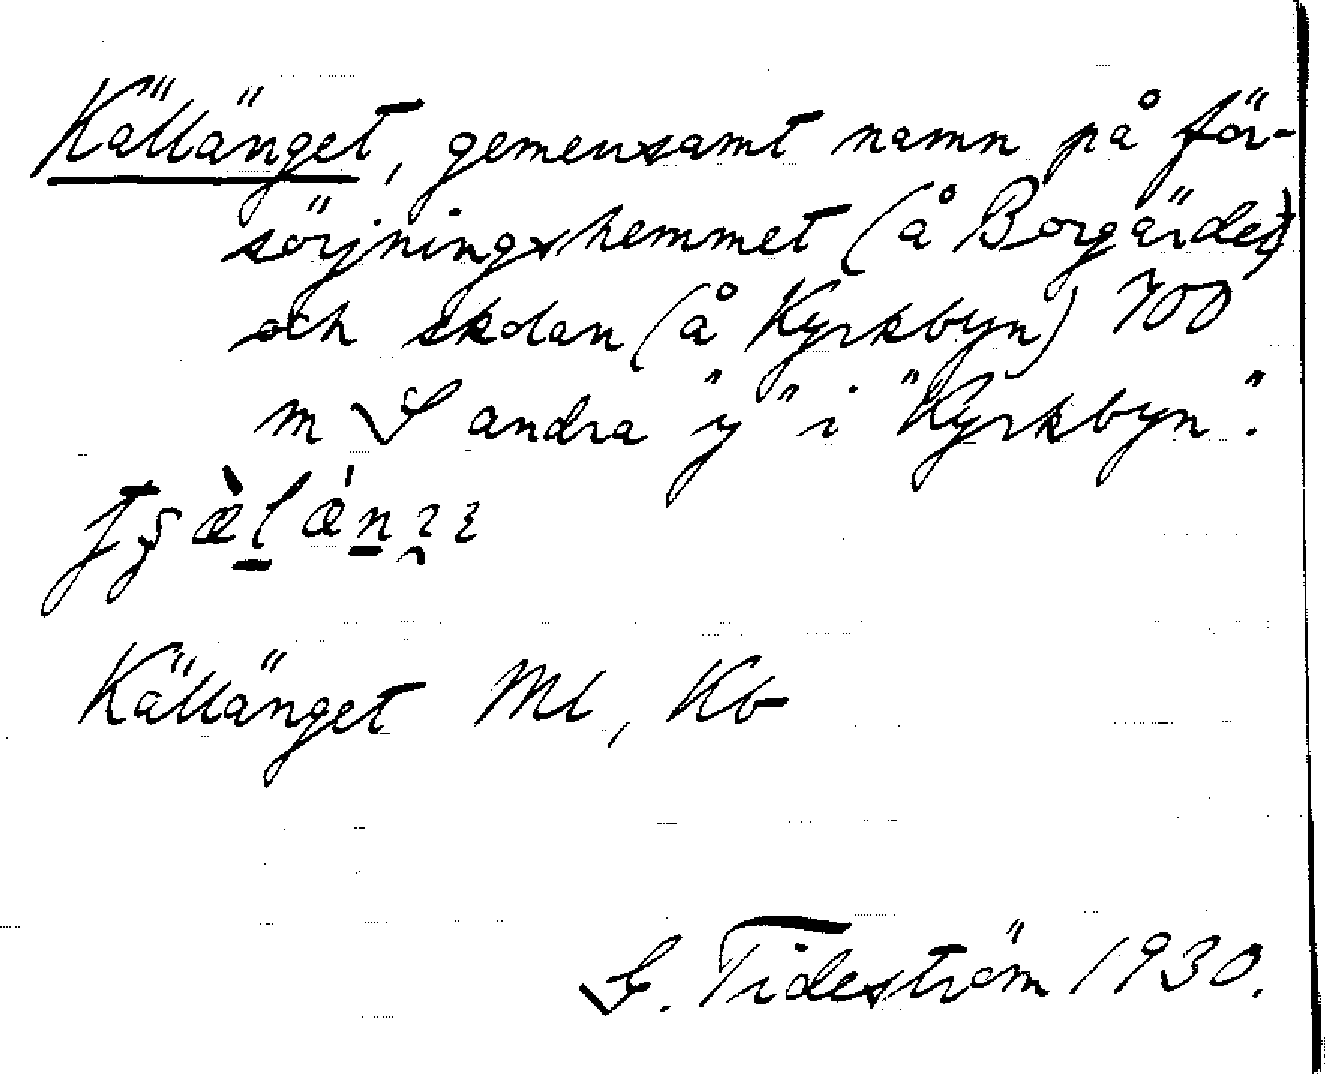 Källänget, gemensamt namn på för-
sörjningshemmet (å Borgärdet)
och skolan (å Kyrkbyn) 700
m S andra "y" i "Kyrkbyn".
Källänget Ml, Kb
S. Tideström 1930.